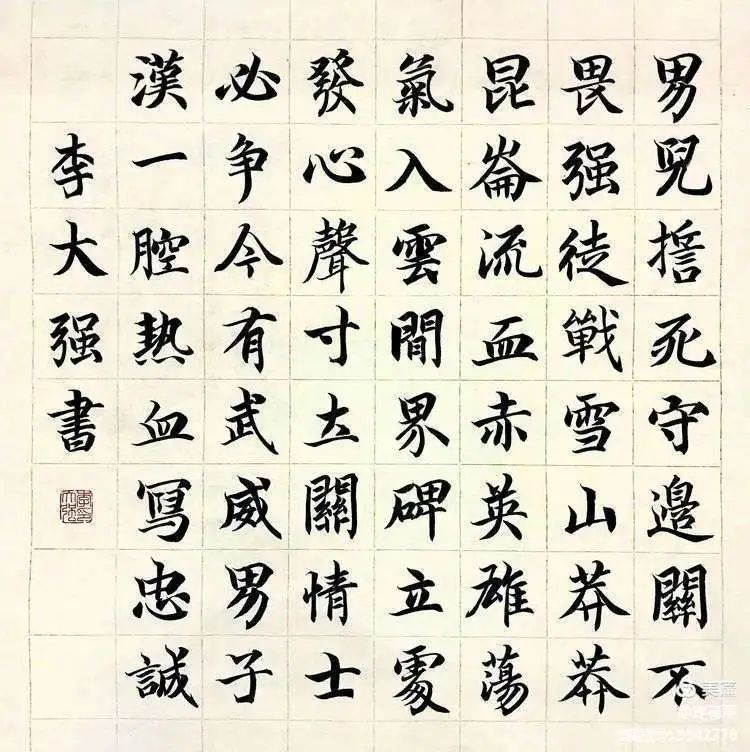 男兒誓死守邉關不
畏强徒戰雪山莽莽
昆崙流血赤英雄蕩
氣入雲間界碑立處
發心聲寸土關情士
必争今有武威男子
漢一腔熱血寫忠誠
李大强書
美篇